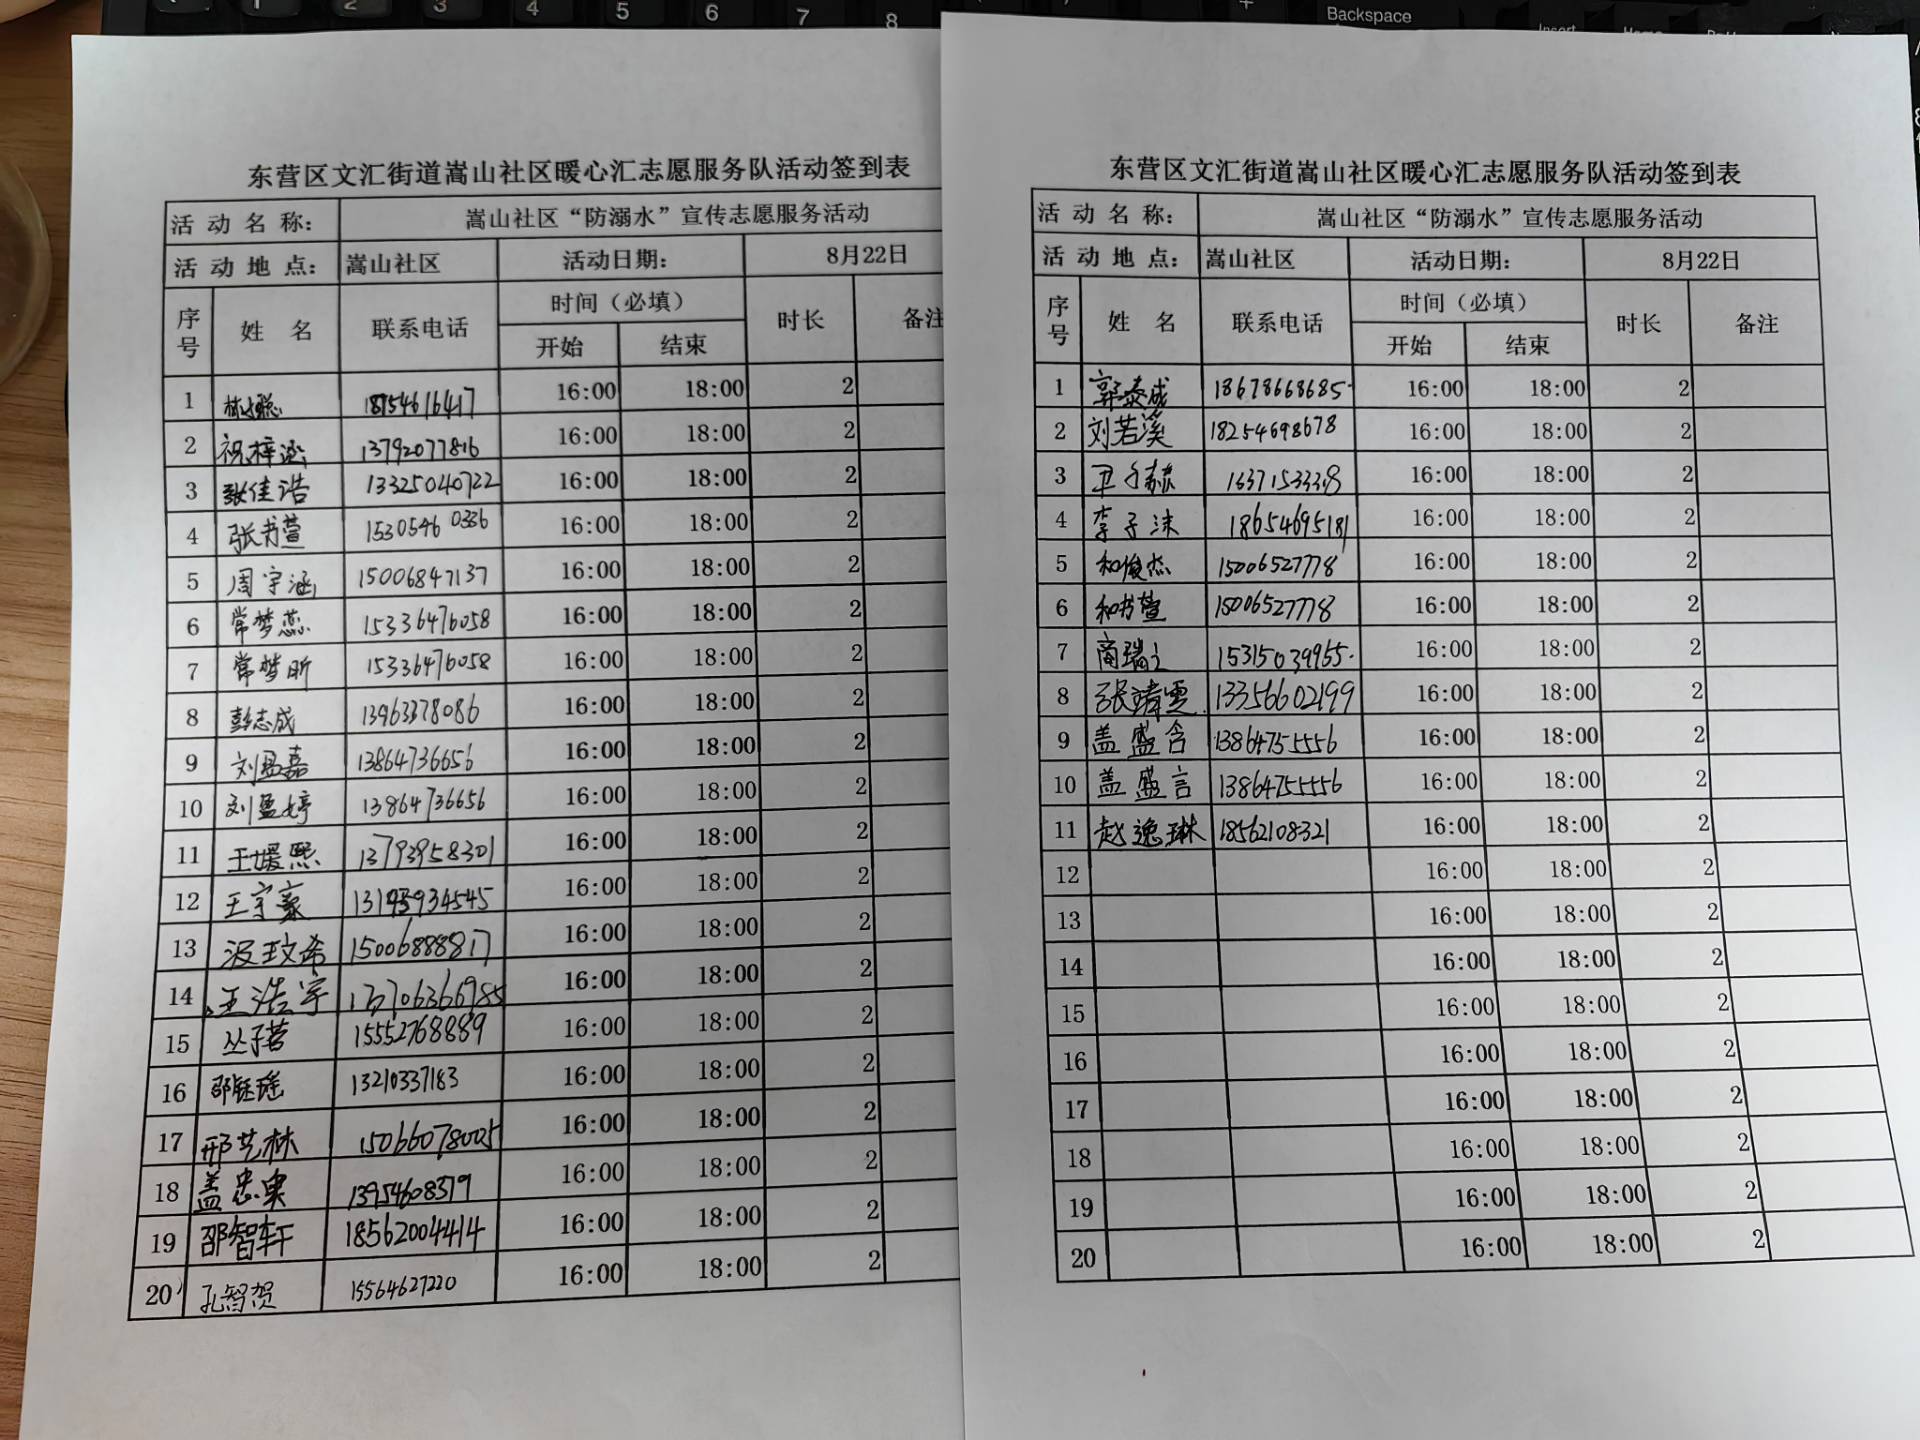 1 2 3 4 5 6 7 8 Backspace Insert
东营区文汇街道嵩山社区暖心汇志愿服务队活动签到表
活动名称: 嵩山社区“防溺水”宣传志愿服务活动
活动地点: 嵩山社区 活动日期: 8月22日
序号 姓 名 联系电话 时间（必填） 时长 备注
开始 结束
1 18754616417 16:00 18:00 2
2 祝梓涵 13792077816 16:00 18:00 2
3 张佳浩 13325040722 16:00 18:00 2
4 张书萱 15305460336 16:00 18:00 2
5 周宇涵 15006847137 16:00 18:00 2
6 常梦蕊 15336476058 16:00 18:00 2
7 常梦昕 15336476058 16:00 18:00 2
8 彭志成 13963378086 16:00 18:00 2
9 刘盈嘉 13864736656 16:00 18:00 2
10 刘盈婷 13864736656 16:00 18:00 2
11 王媛熙 13793958301 16:00 18:00 2
12 王宇豪 16:00 18:00 2
13 汲玟希 15006888817 16:00 18:00 2
14 王浩宇 13706366985 16:00 18:00 2
15 丛子茗 15552768889 16:00 18:00 2
16 邵钰瑶 13210337183 16:00 18:00 2
17 邢艺林 15066078005 16:00 18:00 2
18 盖忠奥 13954608379 16:00 18:00 2
19 邵智轩 18562004414 16:00 18:00 2
20 孔智贺 15564627220 16:00 18:00 2
东营区文汇街道嵩山社区暖心汇志愿服务队活动签到表
活动名称: 嵩山社区“防溺水”宣传志愿服务活动
活动地点: 嵩山社区 活动日期: 8月22日
序号 姓 名 联系电话 时间（必填） 时长 备注
开始 结束
1 郭泰成 18678668685 16:00 18:00 2
2 刘若溪 18254698678 16:00 18:00 2
3 16:00 18:00 2
4 李子沫 18654695181 16:00 18:00 2
5 和俊杰 15006527778 16:00 18:00 2
6 和书萱 15006527778 16:00 18:00 2
7 15315039955 16:00 18:00 2
8 张靖雯 13356602199 16:00 18:00 2
9 盖盛含 13864755556 16:00 18:00 2
10 盖盛言 13864755556 16:00 18:00 2
11 赵逸琳 18562108321 16:00 18:00 2
12 16:00 18:00 2
13 16:00 18:00 2
14 16:00 18:00 2
15 16:00 18:00 2
16 16:00 18:00 2
17 16:00 18:00 2
18 16:00 18:00 2
19 16:00 18:00 2
20 16:00 18:00 2